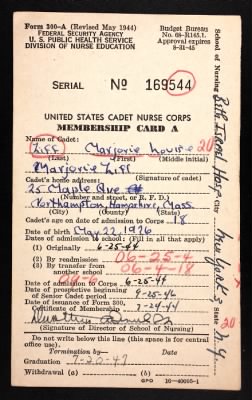 Form 300-A (Revised May 1944)
FEDERAL SECURITY AGENCY
U. S. PUBLIC HEALTH SERVICE
DIVISION OF NURSE EDUCATION
Budget Bureau
No. 68-R145.1.
Approval expires
8-31-45
SERIAL No 169544
UNITED STATES CADET NURSE CORPS
MEMBERSHIP CARD A
Name of Cadet: 20
Liff Marjorie Louise
(Last) (First) (Middle initial)
Marjorie Liff
Cadet's home address: (Signature of cadet)
25 Maple Ave
(Number and street, or R. F. D.)
Northampton, Hampshire, Mass
(City) (County) (State)
Cadet's age on date of admission to Corps 18
Date of birth May 22, 1926
Date of admission to school: (Fill in all that apply)
(1) Originally 6-25-44
(2) By readmission 06-25-4
(3) By transfer from another school 06-4-18
Date of admission to Corps 6-25-44
Date of prospective beginning of Senior Cadet period 9-25-46
Date of issuance of Form 300, Certificate of Membership 7-24-44
(Signature of Director of School of Nursing)
Do not write below this line (this space is for central office use).
Termination by— Date
Graduation 7-20-47
Withdrawal (a) (b)
GPO 16-40005-1
School of Nursing Beth Israel Hosp.
City New York
State N.Y.
20